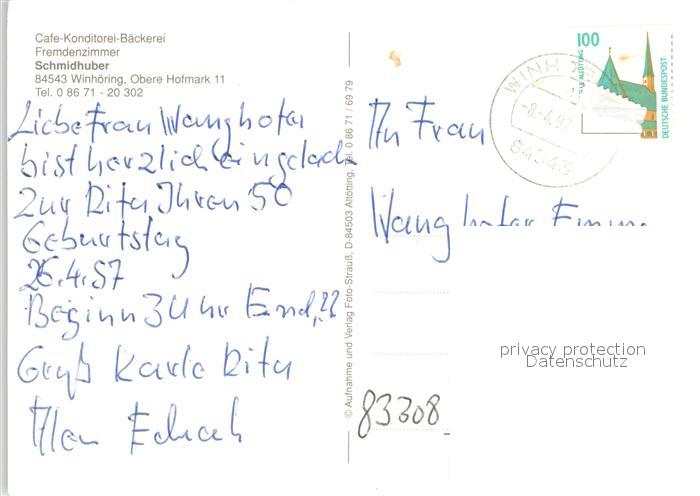 Cafe-Konditorei-Bäckerei
Fremdenzimmer
Schmidhuber
84543 Winhöring, Obere Hofmark 11
Tel. 0 86 71 - 20 302
Liebe Frau Wanghofer
bist herzlich eingelad
Zur Rita Ihren 50
Geburtstag
26.4.97
Beginn 3 Uhr End,??
Gruß Karle Rita
© Aufnahme und Verlag Foto-Strauß, D-84503 Altötting, Tel. 0 86 71 / 69 79
100
ALTÖTTING
DEUTSCHE BUNDESPOST
WINH
-8.-4.97
84543
An Frau
Wanghofer Emma
privacy protection
Datenschutz
83308